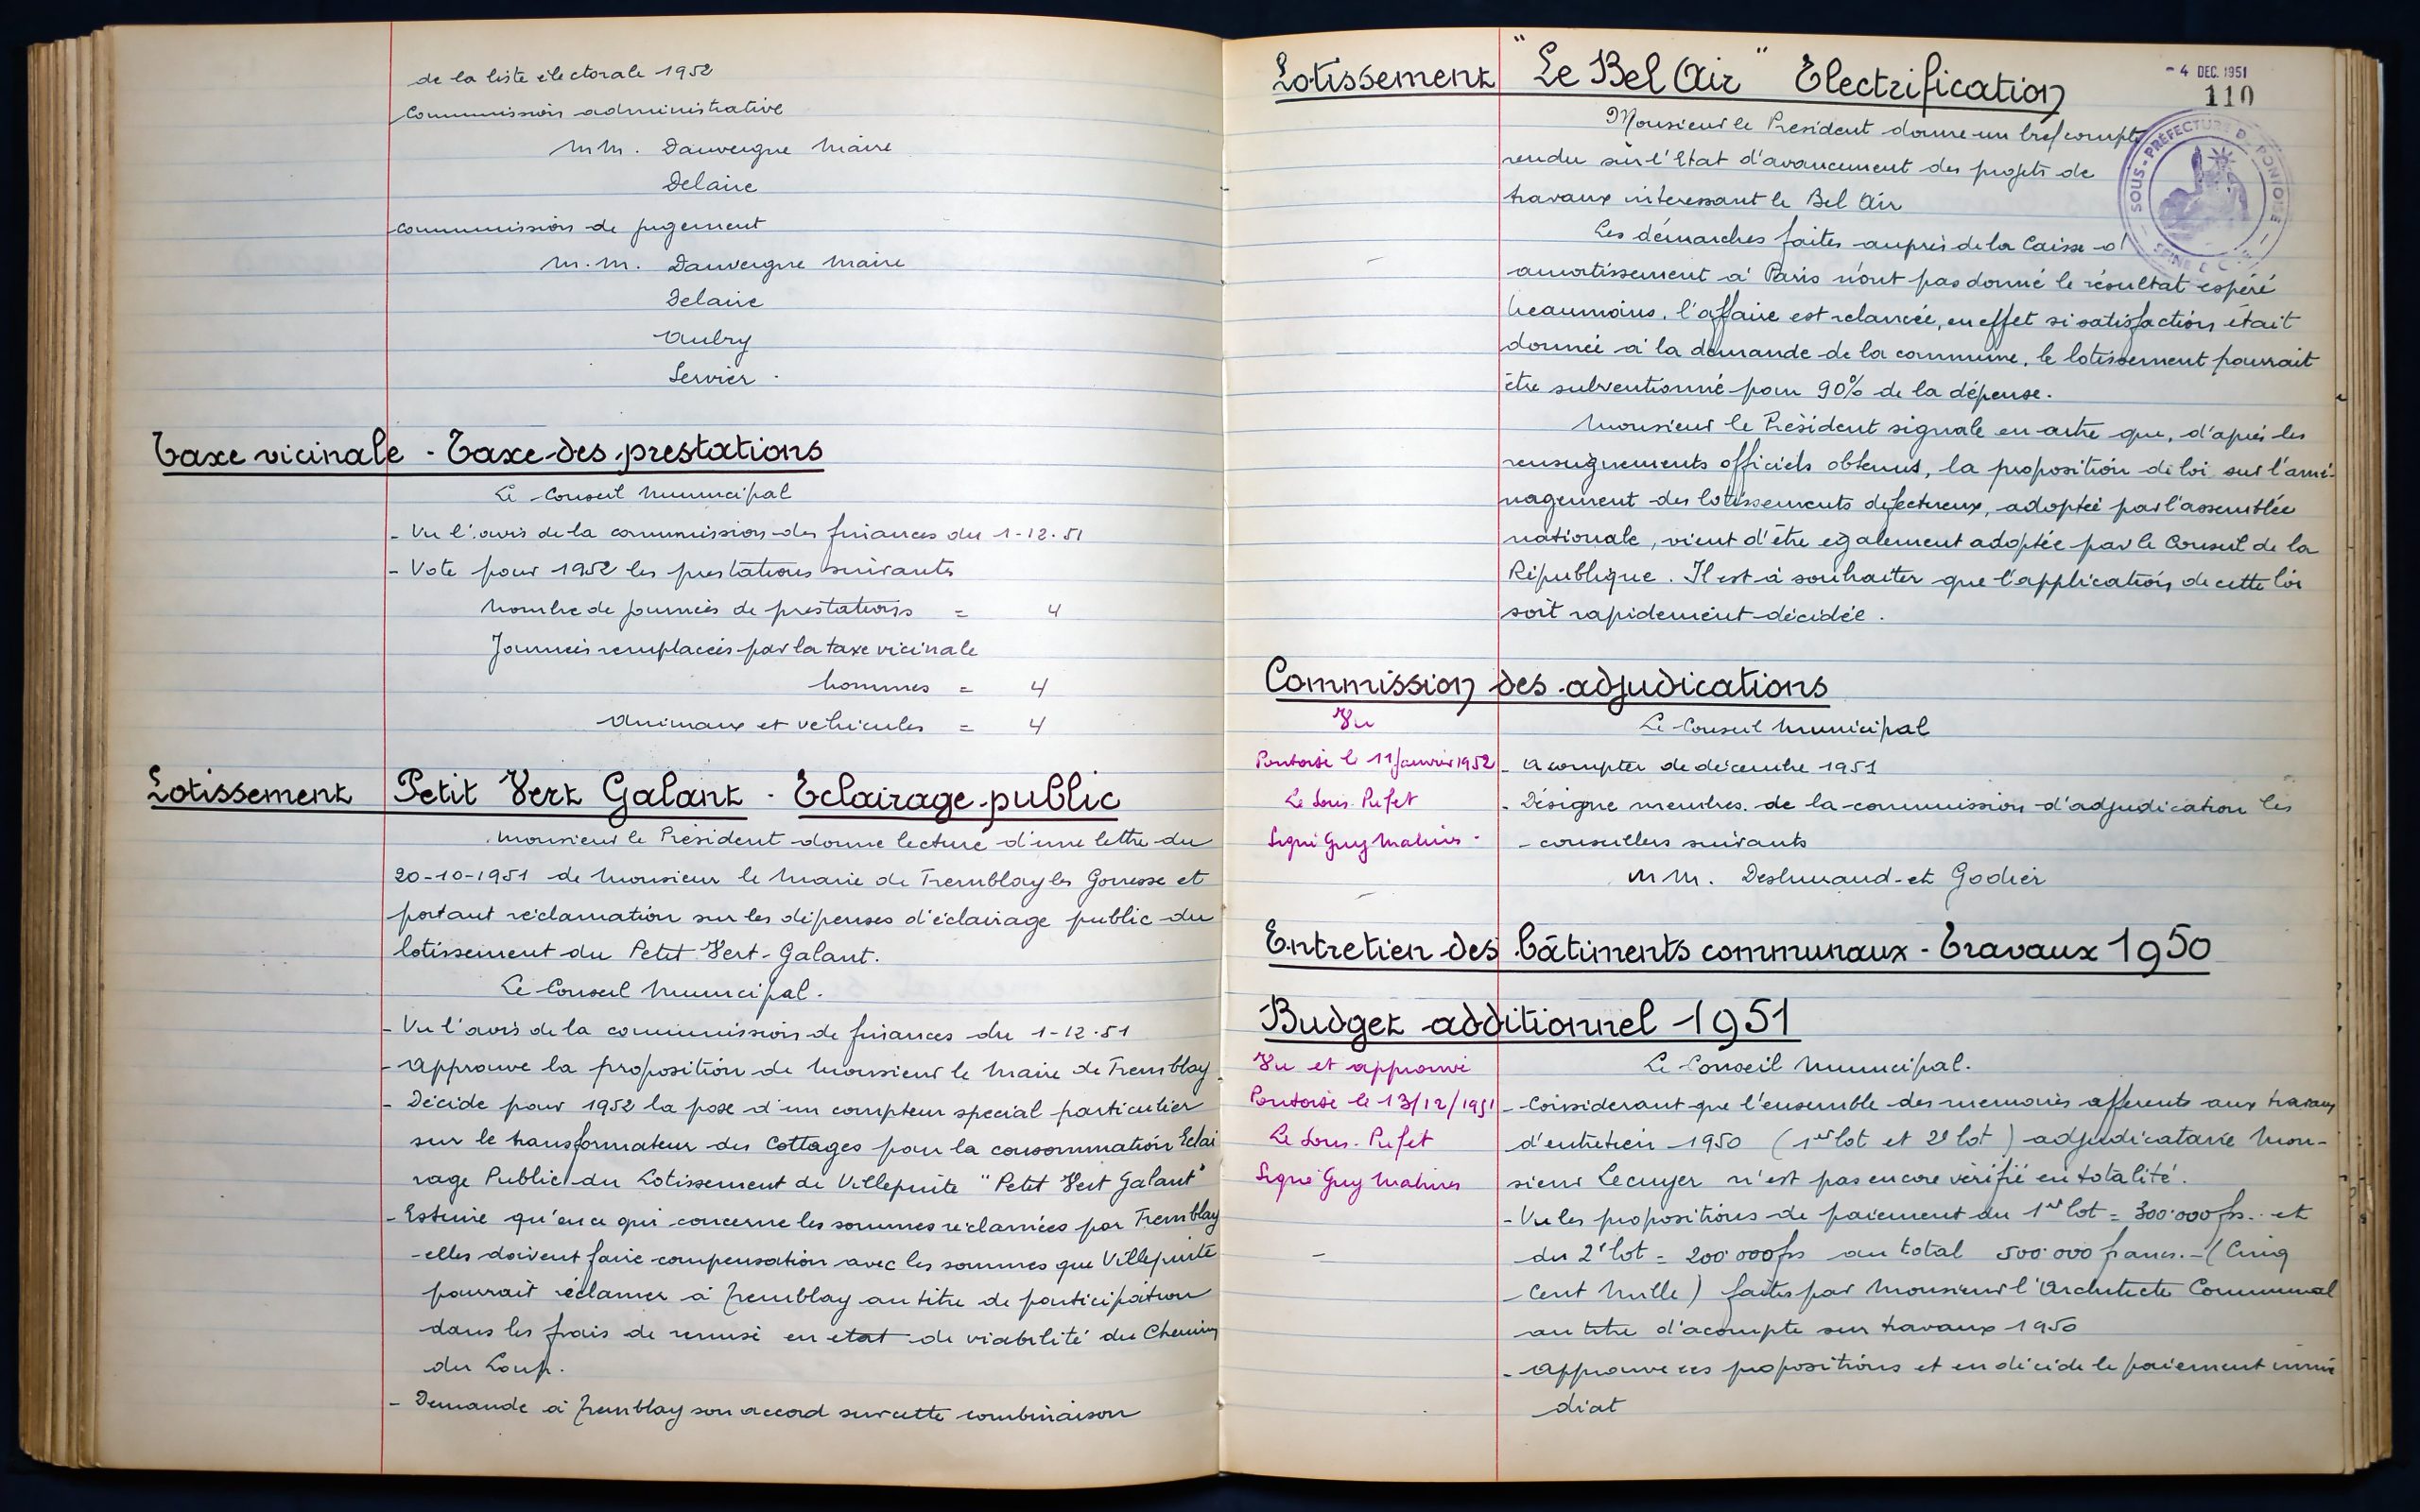 de la liste électorale 1952
Commission administrative
M.M. Dauvergne Maire
Delaire
commission de jugement
M.M. Dauvergne Maire
Delaire
Aubry
Servier.
Taxe vicinale - Taxe des prestations
Le Conseil Municipal
- Vu l'avis de la commission des finances du 1-12-51
- Vote pour 1952 les prestations suivantes
Nombre de journées de prestations = 4
Journées remplacées par la taxe vicinale
hommes = 4
Animaux et vehicules = 4
Lotissement Petit Vert Galant - Eclairage public
Monsieur le Président donne lecture d'une lettre du
20-10-1951 de Monsieur le Maire de Tremblay les Gonesse et
portant réclamation sur les dépenses d'éclairage public du
lotissement du Petit Vert-Galant.
Le Conseil Municipal.
- Vu l'avis de la commission de finances du 1-12-51
- Approuve la proposition de Monsieur le Maire de Tremblay.
- Décide pour 1952 la pose d'un compteur special particulier
sur le transformateur des Cottages pour la consommation Eclai
rage Public du Lotissement de Villepinte "Petit Vert Galant"
- Estime qu'en ce qui concerne les sommes réclamées par Tremblay
elles doivent faire compensation avec les sommes que Villepinte
pourrait réclamer à Tremblay au titre de participation
dans les frais de remise en etat de viabilité du Chemin
du Loup.
- Demande à Tremblay son accord sur cette combinaison
- 4 DEC. 1951
110
Lotissement "Le Bel Air" Electrification
SOUS-PRÉFECTURE DE PONTOISE
SEINE & OISE
Monsieur le President donne un bref compte
rendu sur l'Etat d'avancement des projets de
travaux interessant le Bel Air
Les démarches faites auprès de la Caisse d'
amortissement à Paris n'ont pas donné le résultat espéré
neanmoins, l'affaire est relancée, en effet si satisfaction était
donnée à la demande de la commune, le lotissement pourrait
être subventionné pour 90% de la dépense.
Monsieur le Président signale en outre que, d'après les
renseignements officiels obtenus, la proposition de loi sur l'amé-
nagement des lotissements defectueux, adoptée par l'assemblée
nationale, vient d'être egalement adoptée par le Conseil de la
République. Il est à souhaiter que l'application de cette loi
soit rapidement décidée.
Commission des adjudications
Vu
Pontoise le 11 Janvier 1952
Le Sous-Préfet
Signé Guy Mahins.
Le Conseil Municipal
- A compter de décembre 1951
- Désigne membres de la commission d'adjudication les
conseillers suivants
M.M. Deshuraud et Godier
Entretien des bâtiments communaux - Travaux 1950
Budget additionnel 1951
Vu et approuvé
Pontoise le 13/12/1951
Le Sous-Préfet
Signé Guy Mahins
Le Conseil Municipal.
- Considerant que l'ensemble des memoires afferents aux travaux
d'entretien 1950 (1er lot et 2e lot) adjudicataire Mon-
sieur Lecuyer n'est pas encore vérifié en totalité.
- Vu les propositions de paiement du 1er lot = 300.000 frs. et
du 2e lot = 200.000 frs au total 500.000 francs. - (Cinq
Cent Mille) faites par Monsieur l'Architecte Communal
au titre d'acompte sur travaux 1950
- Approuve ces propositions et en décide le paiement immé
diat